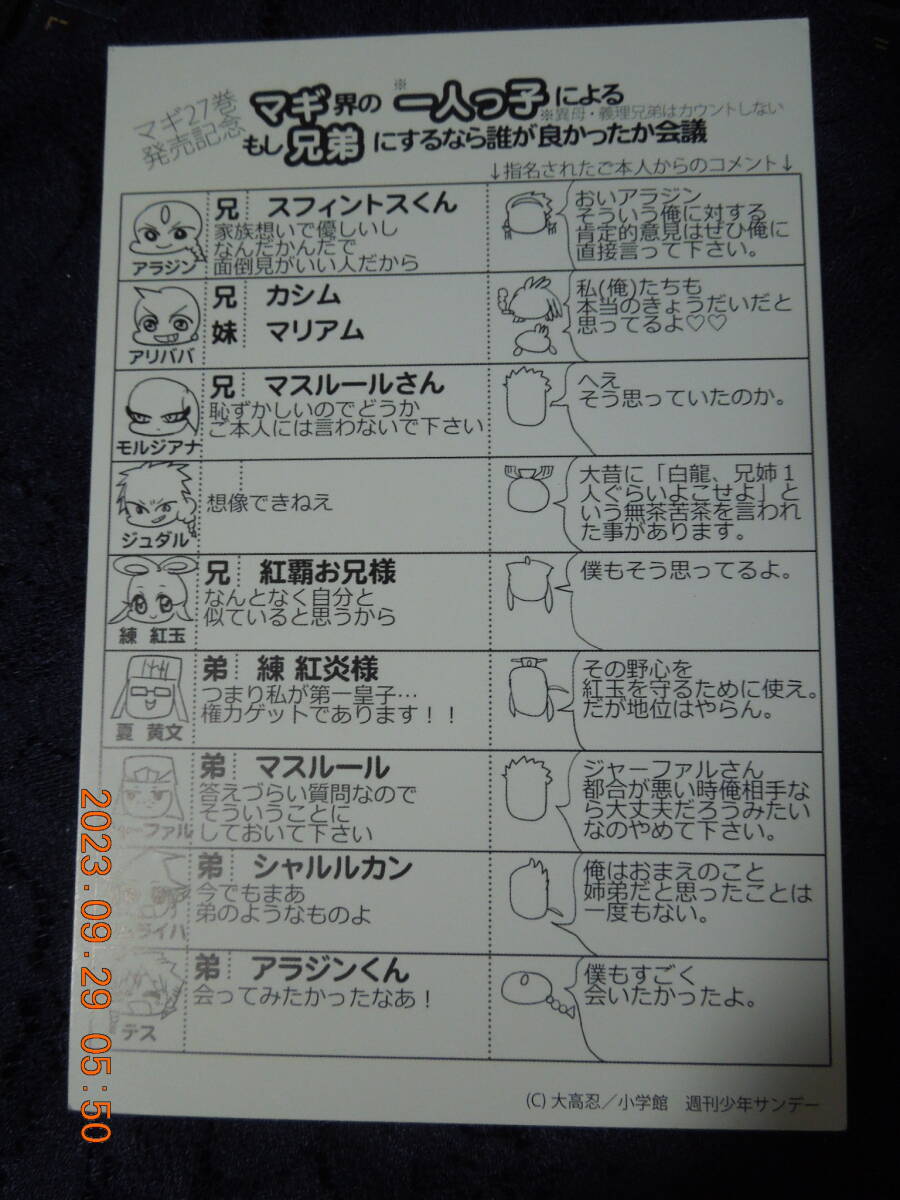 マギ27巻
発売記念
マギ界の※一人っ子による
※異母・義理兄弟はカウントしない
もし兄弟にするなら誰が良かったか会議
↓指名されたご本人からのコメント↓
アラジン
兄 スフィントスくん
家族想いで優しいし
なんだかんだで
面倒見がいい人だから
おいアラジン
そういう俺に対する
肯定的意見はぜひ俺に
直接言って下さい。
アリババ
兄 カシム
妹 マリアム
私(俺)たちも
本当のきょうだいだと
思ってるよ♡♡
モルジアナ
兄 マスルールさん
恥ずかしいのでどうか
ご本人には言わないで下さい
へえ
そう思っていたのか。
ジュダル
想像できねえ
大昔に「白龍、兄姉1
人ぐらいよこせよ」と
いう無茶苦茶を言われ
た事があります。
練 紅玉
兄 紅覇お兄様
なんとなく自分と
似ていると思うから
僕もそう思ってるよ。
夏 黄文
弟 練 紅炎様
つまり私が第一皇子…
権力ゲットであります！！
その野心を
紅玉を守るために使え。
だが地位はやらん。
ーファル
弟 マスルール
答えづらい質問なので
そういうことに
しておいて下さい
ジャーファルさん
都合が悪い時俺相手な
ら大丈夫だろうみたい
なのやめて下さい。
ライハ
弟 シャルルカン
今でもまあ
弟のようなものよ
俺はおまえのこと
姉弟だと思ったことは
一度もない。
テス
弟 アラジンくん
会ってみたかったなあ！
僕もすごく
会いたかったよ。
(C) 大高忍／小学館 週刊少年サンデー
2023.09.29 05:50